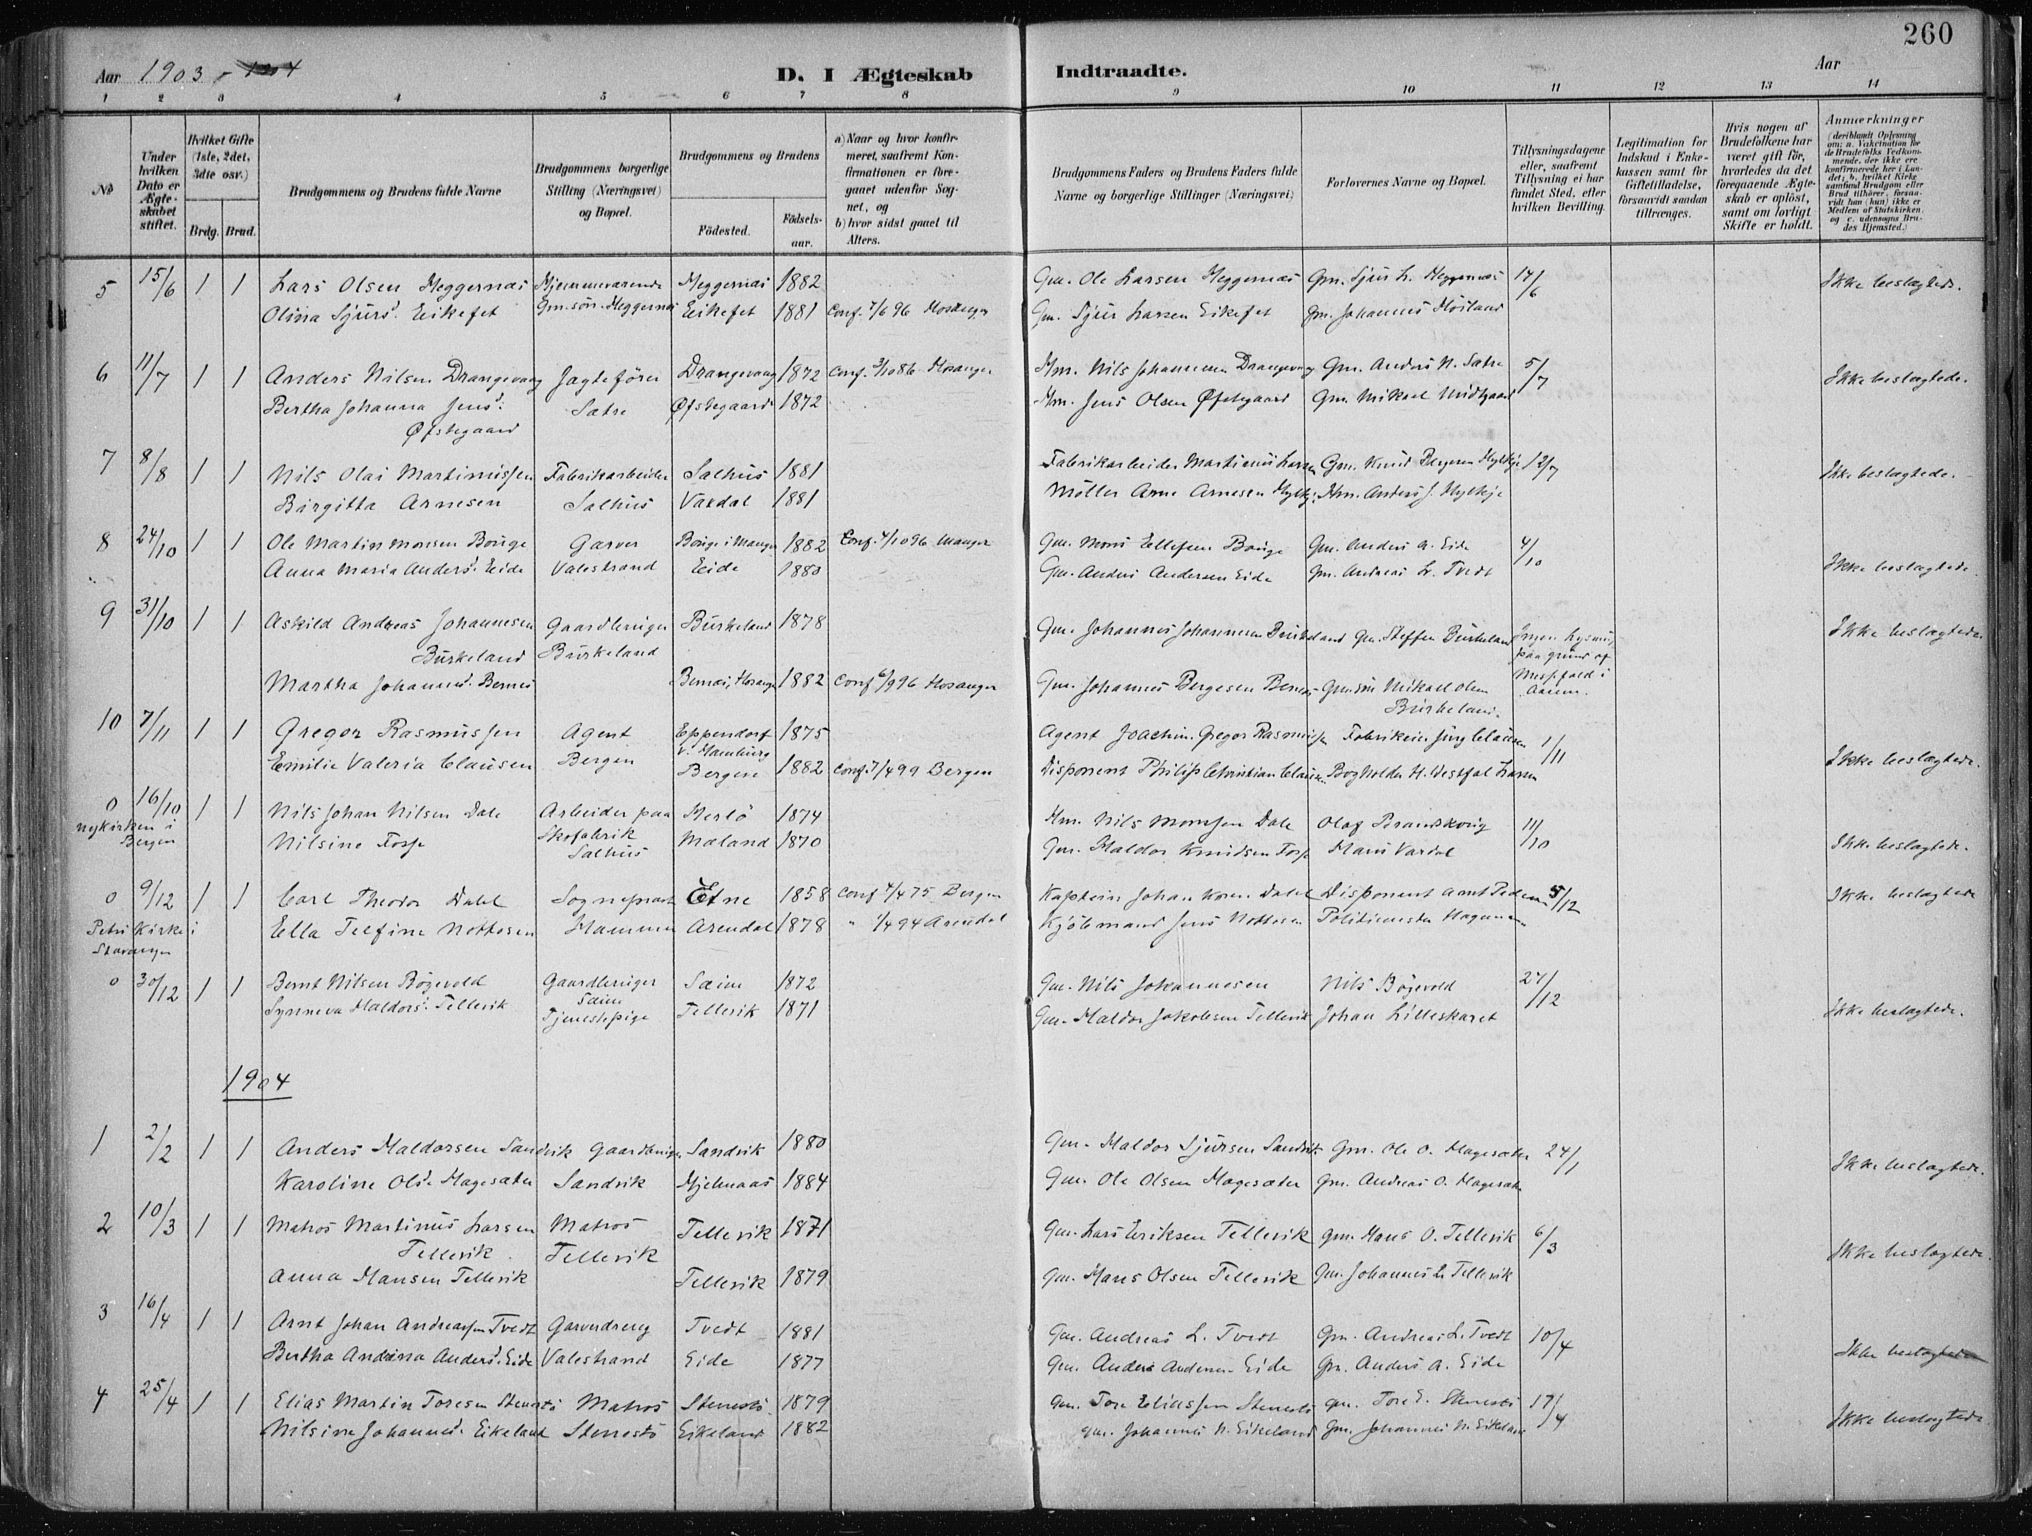 260
Aar 1903 - 1904
D. I Ægteskab Indtraadte. Aar
1 2 3 4 5 6 7 8 9 10 11 12 13 14
No
Under hvilken Dato er Ægteskabet stiftet.
Hvilket Gifte (1ste, 2det, 3dte osv.)
Brdg. Brud.
Brudgommens og Brudens fulde Navne
Brudgommens borgerlige Stilling (Næringsvei) og Bopæl.
Brudgommens og Brudens
Födested. Födselsaar.
a) Naar og hvor konfirmeret, saafremt Konfirmationen er foregaaet udenfor Sognet, og
b) hvor sidst gaaet til Alters.
Brudgommens Faders og Brudens Faders fulde Navne og borgerlige Stillinger (Næringsvei)
Forlovernes Navne og Bopæl.
Tillysningsdagene eller, saafremt Tillysning ei har fundet Sted, efter hvilken Bevilling.
Legitimation for Indskud i Enkekassen samt for Giftetilladelse, forsaavidt saadan tiltrænges.
Hvis nogen af Brudefolkene har været gift för, hvorledes da det foregaaende Ægteskab er oplöst, samt om lovligt Skifte er holdt.
Anmerkninger
(deriblandt Oplysning om: a. Vakcination for de Brudefolks Vedkommende, der ikke ere konfirmerede her i Landet; b. hvilket Kirkesamfund Brudgom eller Brud tilhörer, forsaavidt han (hun) ikke er Medlem af Statskirken, og c. udensogns Brudes Hjemsted.)
5 15/6 1 1 Lars Olsen Heggernæs Hjemmeværende Heggernæs 1882 Gm. Ole Larsen Heggernæs Gm. Sjur L. Heggernæs 14/6 Ikke beslægtede.
Olina Sjursd. Eikefet Gm. søn. Heggernæs Eikefet 1881 Conf. 7/6 96 Hosanger Gm. Sjur Larsen Eikefet Gm. Johannes Høiland
6 11/7 1 1 Anders Nilsen Drangevaag Jagtefører Drangevaag 1872 Conf. 3/10 86 Hosanger Hm. Nils Johannesen Drangevaag Gm. Anders N. Sætre 5/7 Ikke beslægtede.
Bertha Johanna Jensd. Sætre Øfstegaard 1872 Hm. Jens Olsen Øfstegaard Gm. Mikael Midtgaard
Øfstegaard
7 8/8 1 1 Nils Olai Martinussen Fabrikarbeider Salhus 1881 Fabrikarbeider Martinus Larsen Gm. Knud Hylkje 12/7 Ikke beslægtede.
Birgitta Arnesen Salhus Vaxdal 1881 Møller Arne Arnesen Hylkje Hm. Anders J. Hylkje
8 24/10 1 1 Ole Martin Monsen Bouge Garver Bouge i Manger 1882 Conf. 4/10 96 Manger Gm. Mons Ellefsen Bouge Gm. Anders A. Eide 4/10
Anna Maria Andersd. Eide Valestrand Eide 1880 Gm. Anders Andersen Eide Gm. Andreas L. Tvedt Ikke beslægtede
9 31/10 1 1 Askild Andreas Johannesen Gaardbruger Birkeland 1878 Gm. Johannes Johannesen Birkeland Gm. Steffen Birkeland Ingen Lysning Ikke beslægtede
Birkeland Birkeland paa grund af
Martha Johannesd. Bernes Bernæs, Hosanger 1882 Conf. 6/9 96 Hosanger Gm. Johannes Børgesen Bernæs Gm. søn Mikael Olsen
Birkeland.
10 7/11 1 1 Gregor Rasmussen Agent Eppendorf 1875 Agent Joachim Gregor Rasmussen Fabrikeier Jürg Clausen 1/11
v. Hamburg
Emilie Valeria Clausen Bergen Bergen 1882 Conf. 7/4 99 Bergen Disponent Philip Christian Clausen Bogholder H. Westfal Larsen Ikke beslægtede.
0 16/10 1 1 Nils Johan Nilsen Dale Arbeider paa Herlö 1874 Hm. Nils Monssen Dale Olaf Brandskoug 11/10
Nykirken i Bergen Nilsine Fosse Skofabrik Mæland 1870 Gm. Haldor Knudsen Fosse Hans Vaxdal Ikke beslægtede.
Salhus
0 9/12 1 1 Carl Theodor Dahl Sogneprest Etne 1858 Conf. 4/4 75 Bergen Kaptein Johan Koren Dahl Disponent 5/12 Ikke beslægtede
Petri Kirke i Stavanger Ella Telfine Nottosen Hammer Arendal 1878 " 1/4 94 Arendal Kjöbmand Jens Nottosen Politimester Hagemann
0 30/12 1 1 Bernt Nilsen Bøgevold Gaardbruger Sæim 1872 Gm. Nils Johannesen Nils Bøgevold 27/12
Sæim
Synneva Haldorsd. Tellevik Tjenestepige Tellevik 1871 Gm. Haldor Jakobsen Tellevik Johan Lilleskaret Ikke beslægtede.
1904
1 2/2 1 1 Anders Haldorsen Sandvik Gaardbruger Sandvik 1880 Gm. Haldor Sjursen Sandvik Gm. Ole O. Hagesæter 24/1
Karoline Olsd. Hagesæter Sandvik Mjelmaas 1884 Gm. Ole Olsen Hagesæter Gm. Andreas O. Hagesæter Ikke beslægtede.
2 10/3 1 1 Matros Martinus Larsen Matros Tellevik 1871 Gm. Lars Eriksen Tellevik Gm. Hans O. Tellevik 6/3
Tellevik Tellevik Ikke beslægtede.
Anna Hansen Tellevik Tellevik 1879 Gm. Hans Olsen Tellevik Gm. Johannes L. Tellevik
3 16/4 1 1 Arnt Johan Andreassen Tvedt Garverdreng Tvedt 1881 Gm. Andreas L. Tvedt Gm. Andreas L. Tvedt 10/4
Bertha Andrina Andersd. Eide Valestrand Eide 1877 Gm. Anders Andersen Eide Gm. Anders A. Eide Ikke beslægtede
4 25/4 1 1 Elias Martin Toresen Stenestö Matros Stenestö. 1879 Gm. Tore Eliassen Stenestö Gm. Tore E. Stenestö 17/4
Nilsine Johannesd. Eikeland Stenestö Eikeland 1882 Gm. Johannes N. Eikeland Gm. Johannes N. Eikeland Ikke beslægtede.